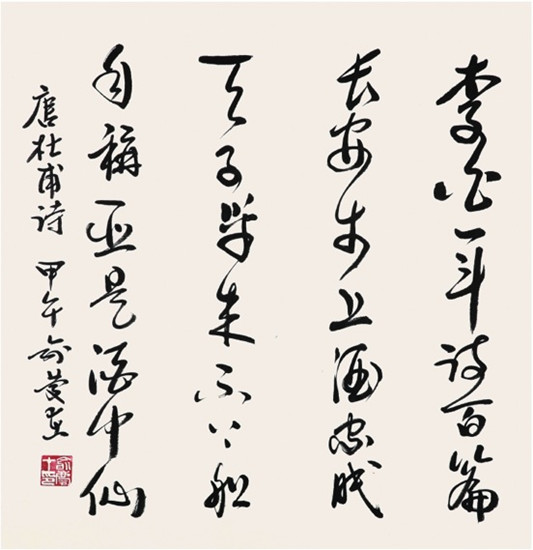 李白一斗诗百篇
长安市上酒家眠
天子呼来不上船
自稱臣是酒中仙
唐杜甫诗 甲午俞